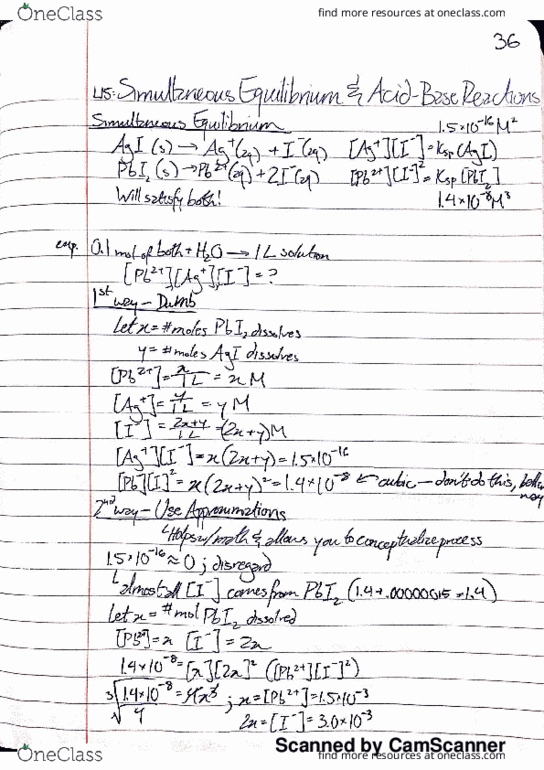 OneClass
find more resources at oneclass.com
36
L15: Simultaneous Equilibrium & Acid-Base Reactions
Simultaneous Equilibrium
1.5×10⁻¹⁶M²
AgI(s) → Ag⁺(aq) + I⁻(aq) [Ag⁺][I⁻]=Ksp(AgI)
PbI₂(s) → Pb²⁺(aq) + 2I⁻(aq) [Pb²⁺][I⁻]²=Ksp[PbI₂]
Will satisfy both!
1.4×10⁻⁸M³
exp. 0.1 mol of both + H₂O → 1L solution
[Pb²⁺][Ag⁺][I⁻]=?
1st way – Dumb
Let x = # moles PbI₂ dissolves
y = # moles AgI dissolves
[Pb²⁺]=x/1L = x M
[Ag⁺]=y/1L = y M
[I⁻]=2x+y/1L =(2x+y)M
[Ag⁺][I⁻]=x(2x+y)=1.5×10⁻¹⁶
[Pb][I]²=x(2x+y)²=1.4×10⁻⁸ ← cubic – don't do this, better way
2nd way – Use Approximations
↳Helps w/ math & allows you to conceptualize process
1.5×10⁻¹⁶≈0; disregard
↳almost all [I⁻] comes from PbI₂ (1.4+.00000015=1.4)
Let x = # mol PbI₂ dissolved
[Pb²⁺]=x [I⁻]=2x
1.4×10⁻⁸=[x][2x]² ([Pb²⁺][I⁻]²)
³√1.4×10⁻⁸/4 = 4x³; x=[Pb²⁺]=1.5×10⁻³
2x=[I⁻]=3.0×10⁻³
Scanned by CamScanner
OneClass
find more resources at oneclass.com